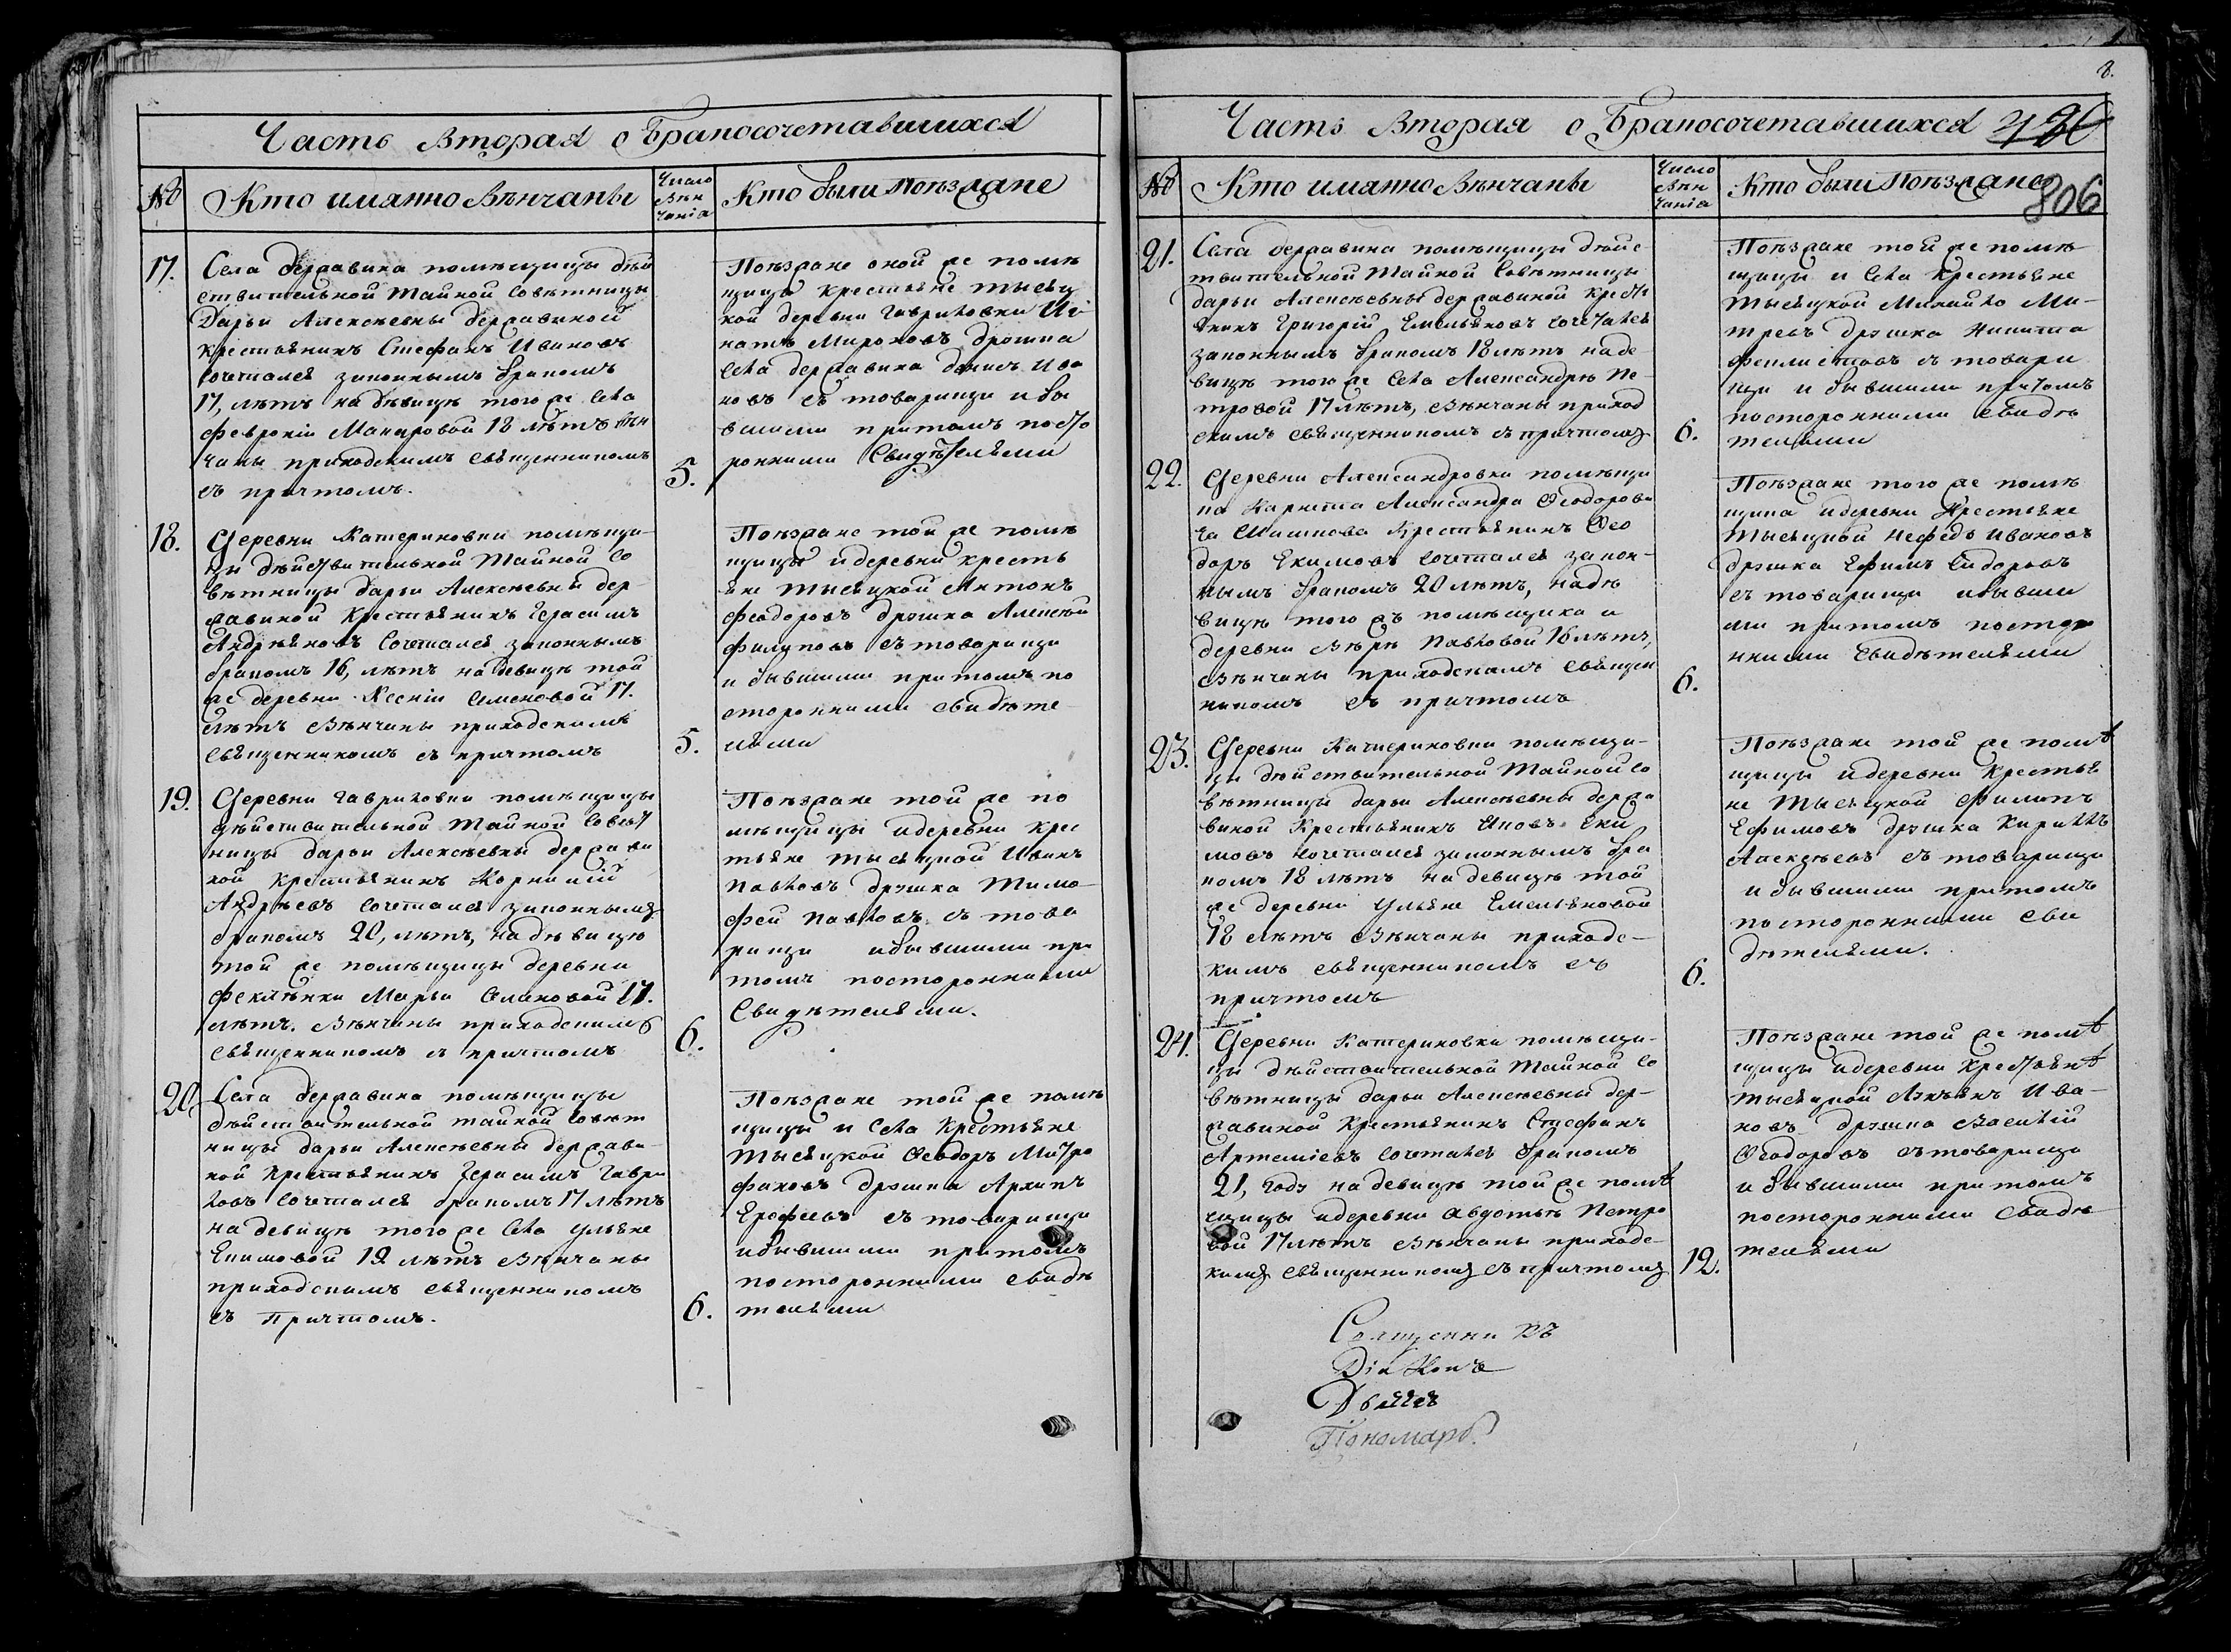 Часть Вторая о Бракосочетавшихся
№
Кто имянно Вѣнчаны
Число
Вѣн
чанiя
Кто были Поѣзжане
17.
Села державина помѣщицы дѣй
ствительной Тайной Совѣтницы
Дарьи Алексѣевны державиной
крестьянинъ Стефанъ Ивановъ
сочетался законнымъ бракомъ
17, лѣтъ на дѣвицѣ того же села
февронiи Макаровой 18 лѣтъ вѣн
чаны приходскимъ священникомъ
съ причтомъ.
5.
Поѣзжане оной же помѣ
щицы крестьяне тысяц
кой деревни гавриловки Иг
натъ Мироновъ дрошка
села державина данилъ ива
новъ съ товарищи и бы
вшими притомъ посто
ронними свидѣтелями
18.
Деревни Катериновки помѣщи-
цы дѣйствительной Тайной Со
вѣтницы дарьи Алексѣевны дер
жавиной крестьянинъ герасимъ
Андрѣяновъ сочетался законнымъ
бракомъ 16, лѣтъ на девицѣ той
же деревни Ксенiи Семеновой 17.
лѣтъ Вѣнчаны приходскимъ
священникомъ съ причтомъ
5.
Поѣзжане той же помѣ
щицы и деревни кресть
яне тысяцкой Антонъ
феодоровъ дрошка Алексѣй
филиповъ съ товарищи
и бывшими притомъ по
сторонними свидѣте
лями
19.
Деревни гавриловки помѣщицы
дѣйствительной Тайной Совѣт
ницы дарьи Алексѣевны держави
ной крестьянинъ Корнилiй
Андрѣевъ сочетался законнымъ
бракомъ 20, лѣтъ, на дѣвицѣ
той же помѣщицы деревни
феклѣнки Марьи Симоновой 17.
лѣтъ. Вѣнчаны приходскимъ
священникомъ съ причтомъ
6.
Поѣзжане той же по
мѣщицы и деревни крес
тьяне тысяцкой Иванъ
Павловъ дрошка Тимо-
фей Павловъ съ това
рищи и бывшими при
томъ посторонними
Свидѣтелями.
20.
Села державина помѣщицы
дѣйствительной тайной совѣт
ницы дарьи Алексѣевны держави-
ной крестьянинъ герасимъ гаври
ловъ сочетался бракомъ 17 лѣтъ
на девицѣ того же села ульяне
Екимовой 19 лѣтъ вѣнчаны
приходскимъ священникомъ
съ Причтомъ.
6.
Поѣзжане той же помѣ
щицы и села крестьяне
тысяцкой Феодоръ Митро
фановъ дрошка Архипъ
Ерофеевъ съ товарищи
и бывшими притомъ
посторонними свидѣ
телями
8.
Часть Вторая о Бракосочетавшихся
806
№
Кто имянно Вѣнчаны
Число
Вѣн
чанiя
Кто были Поѣзжане
21.
Села державина помѣщицы дѣйс
твительной Тайной Совѣтницы
дарьи Алексѣевны державиной кресть
янинъ григорiй Емельяновъ сочетался
законнымъ бракомъ 18 лѣтъ на де
вицѣ того же села Александрѣ Пе
тровой 17 лѣтъ, Вѣнчаны приход
скимъ священникомъ съ причтомъ
6.
Поѣзжане той же помѣ
щицы и села крестьяне
тысяцкой Михайло Ми-
тревъ дрошка никита
феклистовъ с товари
щи и бывшими притомъ
посторонними свидѣ
телями
22.
Деревни Александровки помѣщи
ка Карнета Александра Феодорови
ча Шишкова крестьянинъ Фео
доръ Екимовъ сочетался закон-
нымъ бракомъ 20 лѣтъ, на дѣ
вицѣ того жъ помѣщика и
деревни вѣрѣ Павловой 16 лѣтъ,
вѣнчаны приходскимъ священ
никомъ съ причтомъ
6.
Поѣзжане того же помѣ
щика и деревни крестьяне
тысяцкой нефедъ ивановъ
дрошка Ефимъ Сидоровъ
съ товарищи и бывши
ми притомъ посторо
нними свидѣтелями
23.
Деревни Катериновки помѣщи-
цы дѣйствительной Тайной со
вѣтницы дарьи Алексѣевны держа
виной крестьянинъ Иновъ Еки
мовъ сочетался законнымъ бра
комъ 18 лѣтъ на девицѣ той
же деревни ульяне Емельяновой
18 лѣтъ вѣнчаны приходс-
кимъ священникомъ съ
причтомъ
6.
Поѣзжане той же помѣ
щицы и деревни крестья
не тысяцкой Филипъ
Ефимовъ дрошка Кириллъ
Алексѣевъ съ товарищи
и бывшими притомъ
посторонними сви
дѣтелями.
24.
Деревни Катериновки помѣщи-
цы дѣйствительной Тайной со
вѣтницы дарьи Алексѣевны дер-
жавиной крестьянинъ Стефанъ
Артемiевъ сочетался бракомъ
21, годъ на девицѣ той же помѣ
щицы и деревни авдотьѣ Петро
вой 17 лѣтъ вѣнчаны приходс-
кимъ священникомъ съ причтомъ
12.
Поѣзжане той же помѣ
щицы и деревни крестьянѣ
тысяцкой Лукьянъ Ива-
новъ дрошка Василiй
Феодоровъ съ товарищи
и бывшими притомъ
посторонними свидѣ
телями
Священникъ
Дiаконъ
Дьячек
Пономарь